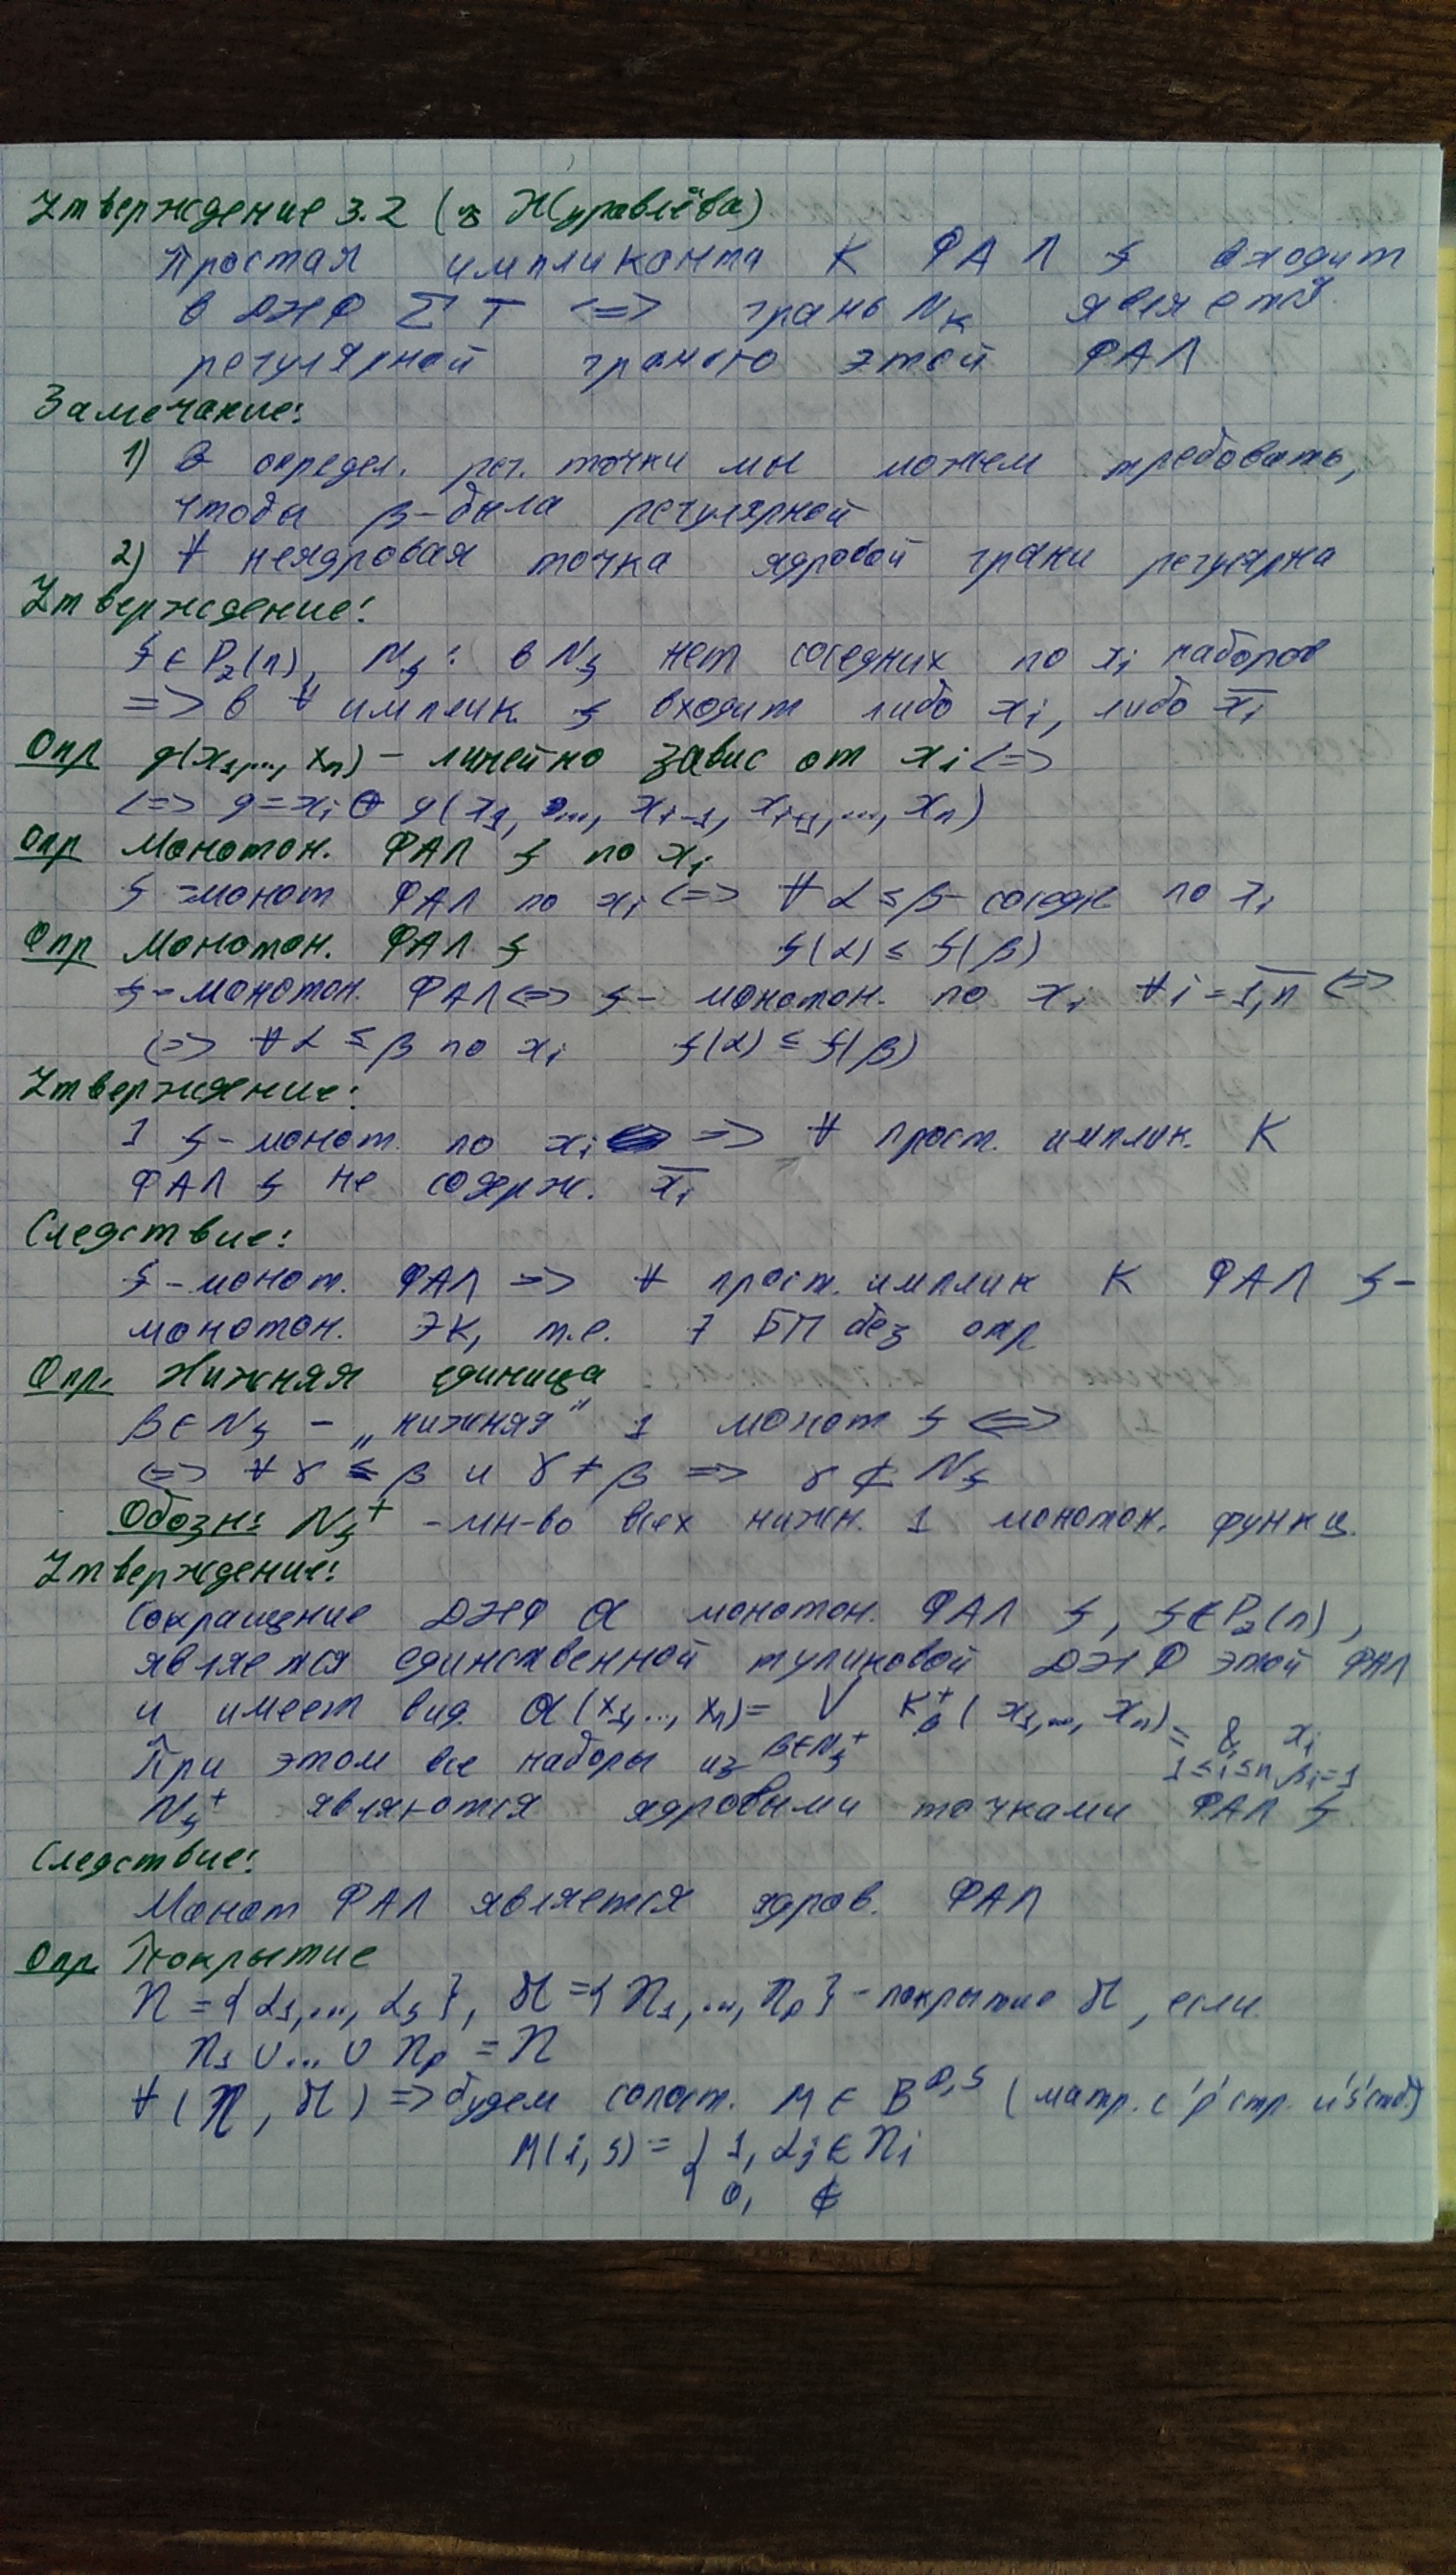 Утверждение 3.2 (в Журавлёва)
Простая импликанта K ФАЛ f входит
в ДНФ ΣT <=> грань N_K является
регулярной гранью этой ФАЛ
Замечание:
1) В определ. рег. точки мы можем требовать,
чтобы β-была регулярной
2) ∀ неядровая точка ядровой грани регулярна
Утверждение:
f ∈ P₂(n), N_f: в N_f нет соседних по x_i наборов
=> в ∀ имплик. f входит либо x_i, либо x̅_i
Опр g(x₁,..., x_n) - линейно завис от x_i <=>
<=> g = x_i ⊕ g(x₁, ..., x_{i-1}, x_{i+1},..., x_n)
Опр Монотон. ФАЛ f по x_i
f - монот ФАЛ по x_i <=> ∀ α ≤ β - соседн по x_i
Опр Монотон. ФАЛ f f(α) ≤ f(β)
f - монотон. ФАЛ <=> f - монотон. по x_i ∀ i = 1,n <=>
<=> ∀ α ≤ β по x_i f(α) ≤ f(β)
Утверждение:
1 f - монот. по x_i => ∀ прост. имплик. K
ФАЛ f не содерж. x̅_i
Следствие:
f - монот. ФАЛ => ∀ прост. имплик K ФАЛ f -
монотон. ЭК, т.е. 7 БП без отр
Опр. Нижняя единица
β ∈ N_f - „нижняя" 1 монот f <=>
<=> ∀ γ ≤ β и γ ≠ β => γ ∉ N_f
Обозн: N_f⁺ - мн-во всех нижн. 1 монотон. функц.
Утверждение:
Сокращение ДНФ α монотон. ФАЛ f, f ∈ P₂(n),
является единственной тупиковой ДНФ этой ФАЛ
и имеет вид α(x₁,..., x_n) = V K_β⁺(x₁,..., x_n) = & x_i
При этом все наборы из β∈N_f⁺ 1≤i≤n, β_i=1
N_f⁺ являются ядровыми точками ФАЛ f
Следствие:
Монот ФАЛ является ядров. ФАЛ
Опр Покрытие
N = {α₁,..., α_s}, 𝔑 = {N₁,..., N_p} - покрытие 𝔑, если
N₁ ∪...∪ N_p = N
∀ (N, 𝔑) => будем сопост. M ∈ B^{p,s} (матр. с 'p' стр. и 's' стб.)
M(i, j) = { 1, α_j ∈ N_i
0, ∉